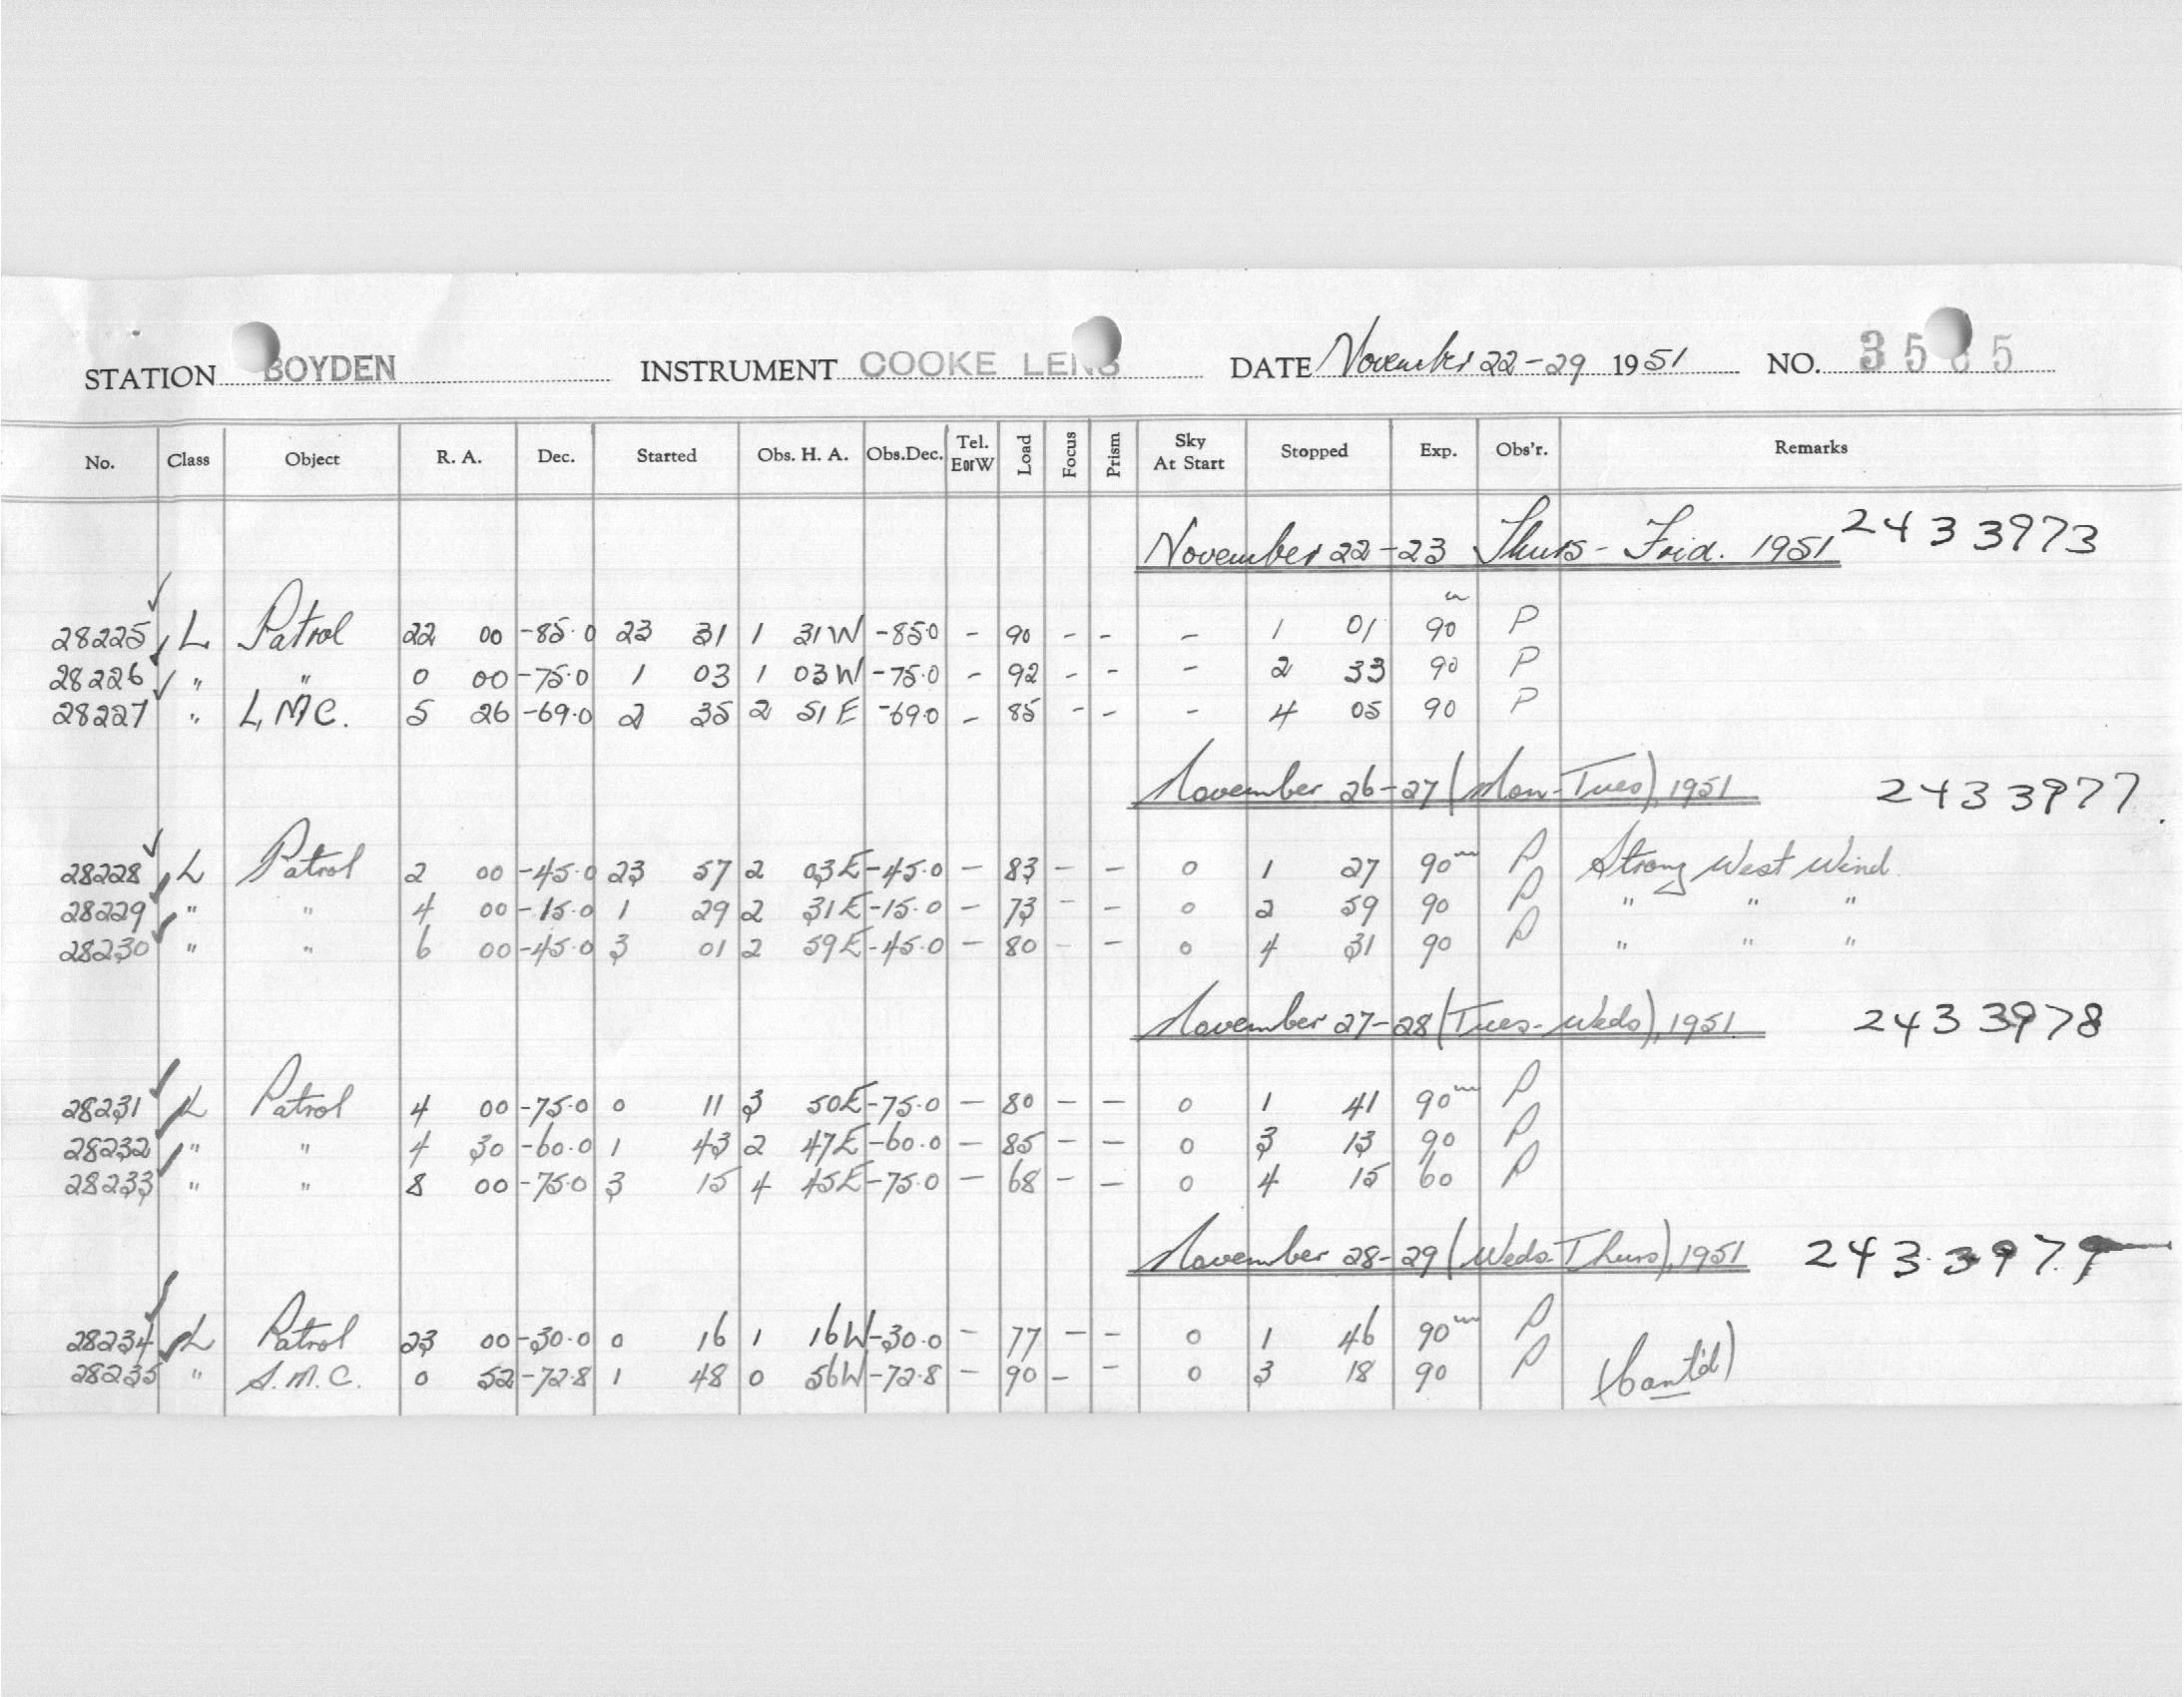 STATION BOYDEN INSTRUMENT COOKE LENS DATE November 22-29 1951 NO. 35 5
No. Class Object R. A. Dec. Started Obs. H. A. Obs.Dec. Tel. EorW Load Focus Prism Sky At Start Stopped Exp. Obs'r. Remarks
November 22-23 Thurs - Frid. 1951 243 3973
28225 L Patrol 22 00 -85.0 23 31 1 31W -85.0 - 90 - - - 1 01 90m P
28226 " " 0 00 -75.0 1 03 1 03W -75.0 - 92 - - - 2 33 90 P
28227 " L.M.C. 5 26 -69.0 2 35 2 51E -69.0 - 85 - - - 4 05 90 P
November 26-27 (Mon-Tues), 1951 243 3977
28228 L Patrol 2 00 -45.0 23 57 2 03E -45.0 - 83 - - 0 1 27 90m P Strong West Wind
28229 " " 4 00 -15.0 1 29 2 31E -15.0 - 73 - - 0 2 59 90 P " " "
28230 " " 6 00 -45.0 3 01 2 59E -45.0 - 80 - - 0 4 31 90 P " " "
November 27-28 (Tues-Weds), 1951 243 3978
28231 L Patrol 4 00 -75.0 0 11 3 50E -75.0 - 80 - - 0 1 41 90m P
28232 " " 4 30 -60.0 1 43 2 47E -60.0 - 85 - - 0 3 13 90 P
28233 " " 8 00 -75.0 3 15 4 45E -75.0 - 68 - - 0 4 15 60 P
November 28-29 (Weds-Thurs), 1951 243 3979
28234 L Patrol 23 00 -30.0 0 16 1 16W -30.0 - 77 - - 0 1 46 90m P
28235 " S.M.C. 0 52 -72.8 1 48 0 56W -72.8 - 90 - - 0 3 18 90 P (Cont'd)